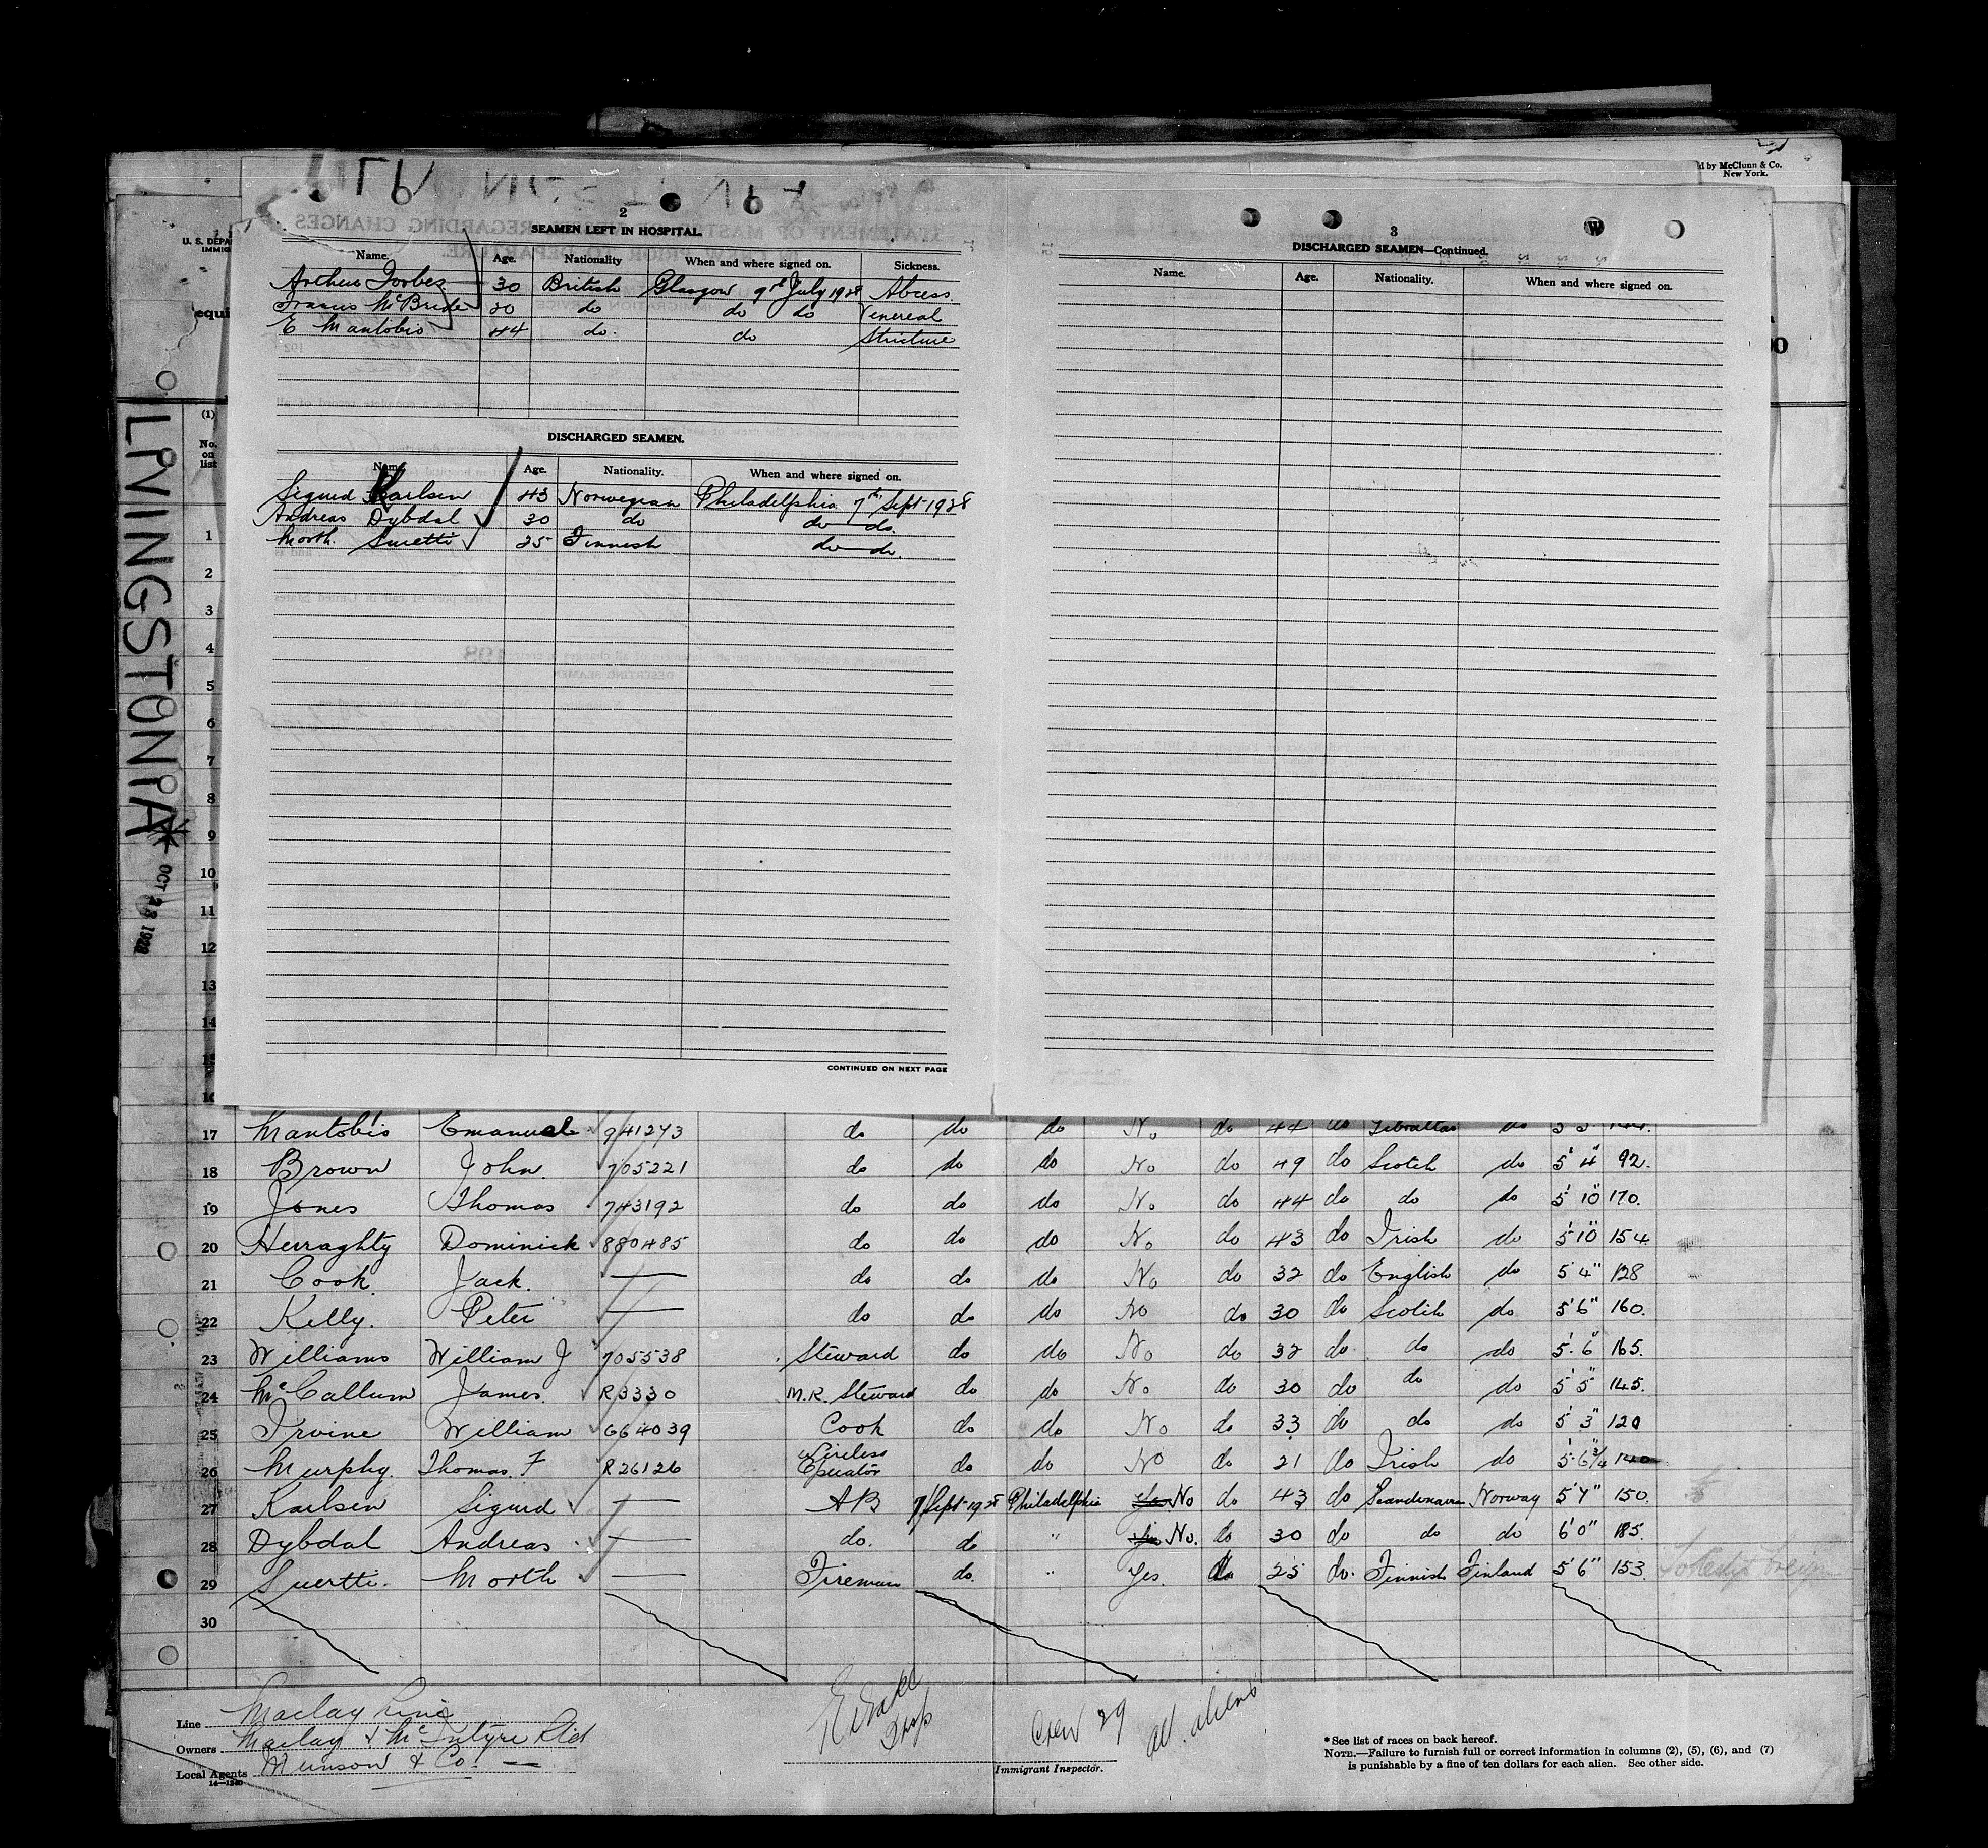 d by McClunn & Co.
New York.
U. S. DEPA
IMMIG
equi
LIVINGSTONIA
OCT 23 1928
2
SEAMEN LEFT IN HOSPITAL.
Name. Age. Nationality When and where signed on. Sickness.
Arthur Forbes 30 British Glasgow 9th July 1928 Abcess
Francis McBride 20 do do do Venereal
E Mantobis 44 do. do Stricture
DISCHARGED SEAMEN.
Name. Age. Nationality. When and where signed on.
Sigurd Karlsen 43 Norwegian Philadelphia 7th Sept 1928
Andreas Dybdal 30 do do do.
Morth. Suretti 25 Finnish do do.
CONTINUED ON NEXT PAGE
3
DISCHARGED SEAMEN—Continued.
Name. Age. Nationality. When and where signed on.
W
(1)
No.
on
list
1
2
3
4
5
6
7
8
9
10
11
12
13
14
15
16
17 Mantobis Emanuel 941273 do do do No do 44 do Gibraltar do 5'5" 144.
18 Brown John. 705221 do do do No do 49 do Scotch do 5'4" 92.
19 Jones Thomas 743192 do do do No do 44 do do do 5'10" 170.
20 Herraghty Dominick 880485 do do do No do 43 do Irish do 5'10" 154
21 Cook. Jack. — do do do No do 32 do English do 5'4" 128
22 Kelly. Peter — do do do No do 30 do Scotch do 5'6" 160.
23 Williams William J 705538 Steward do do No do 32 do. do do 5'.6" 165.
24 McCallum James. R3330 M.R. Steward do do No do 30 do do do 5'5" 145.
25 Irvine William 664039 Cook do do No do 33 do do do 5'3" 120
26 Murphy. Thomas. F R26126 Wireless Operator do do No do 21 do Irish do 5'.6¾" 140
27 Karlsen Sigurd — AB 7/Sept-1928 Philadelphia Yes No do 43 do Scandinavian Norway 5'7" 150.
28 Dybdal Andreas — do. do " Yes No. do 30 do do do 6'0" 185.
29 Suertti. Morth — Fireman do. " Yes. do 25 do. Finnish Finland 5'6" 153.
30
Line Maclay Line
Owners Maclay & McIntyre Ltd
Local Agents Munson & Co. —
14—1240
Crew 29 all aliens
Immigrant Inspector.
* See list of races on back hereof.
NOTE.—Failure to furnish full or correct information in columns (2), (5), (6), and (7)
is punishable by a fine of ten dollars for each alien. See other side.